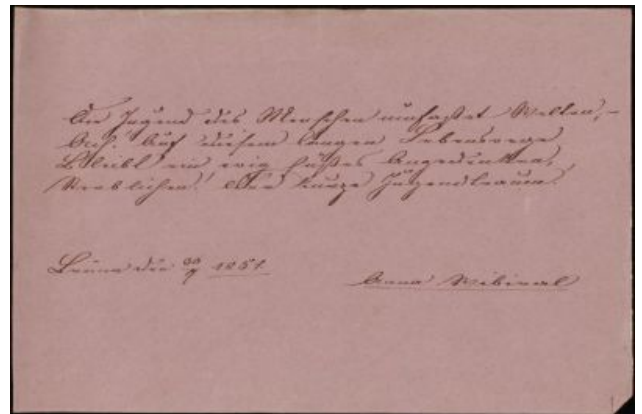 Die Jugend des Menschen umfasset Welten, –
Ach! Auf diesem langen Lebenswege
Bleibt ein ewig süßes Angedenken,
Verblichen! Der kurze Jugendtraum.
Brünn den 1851.
Anna